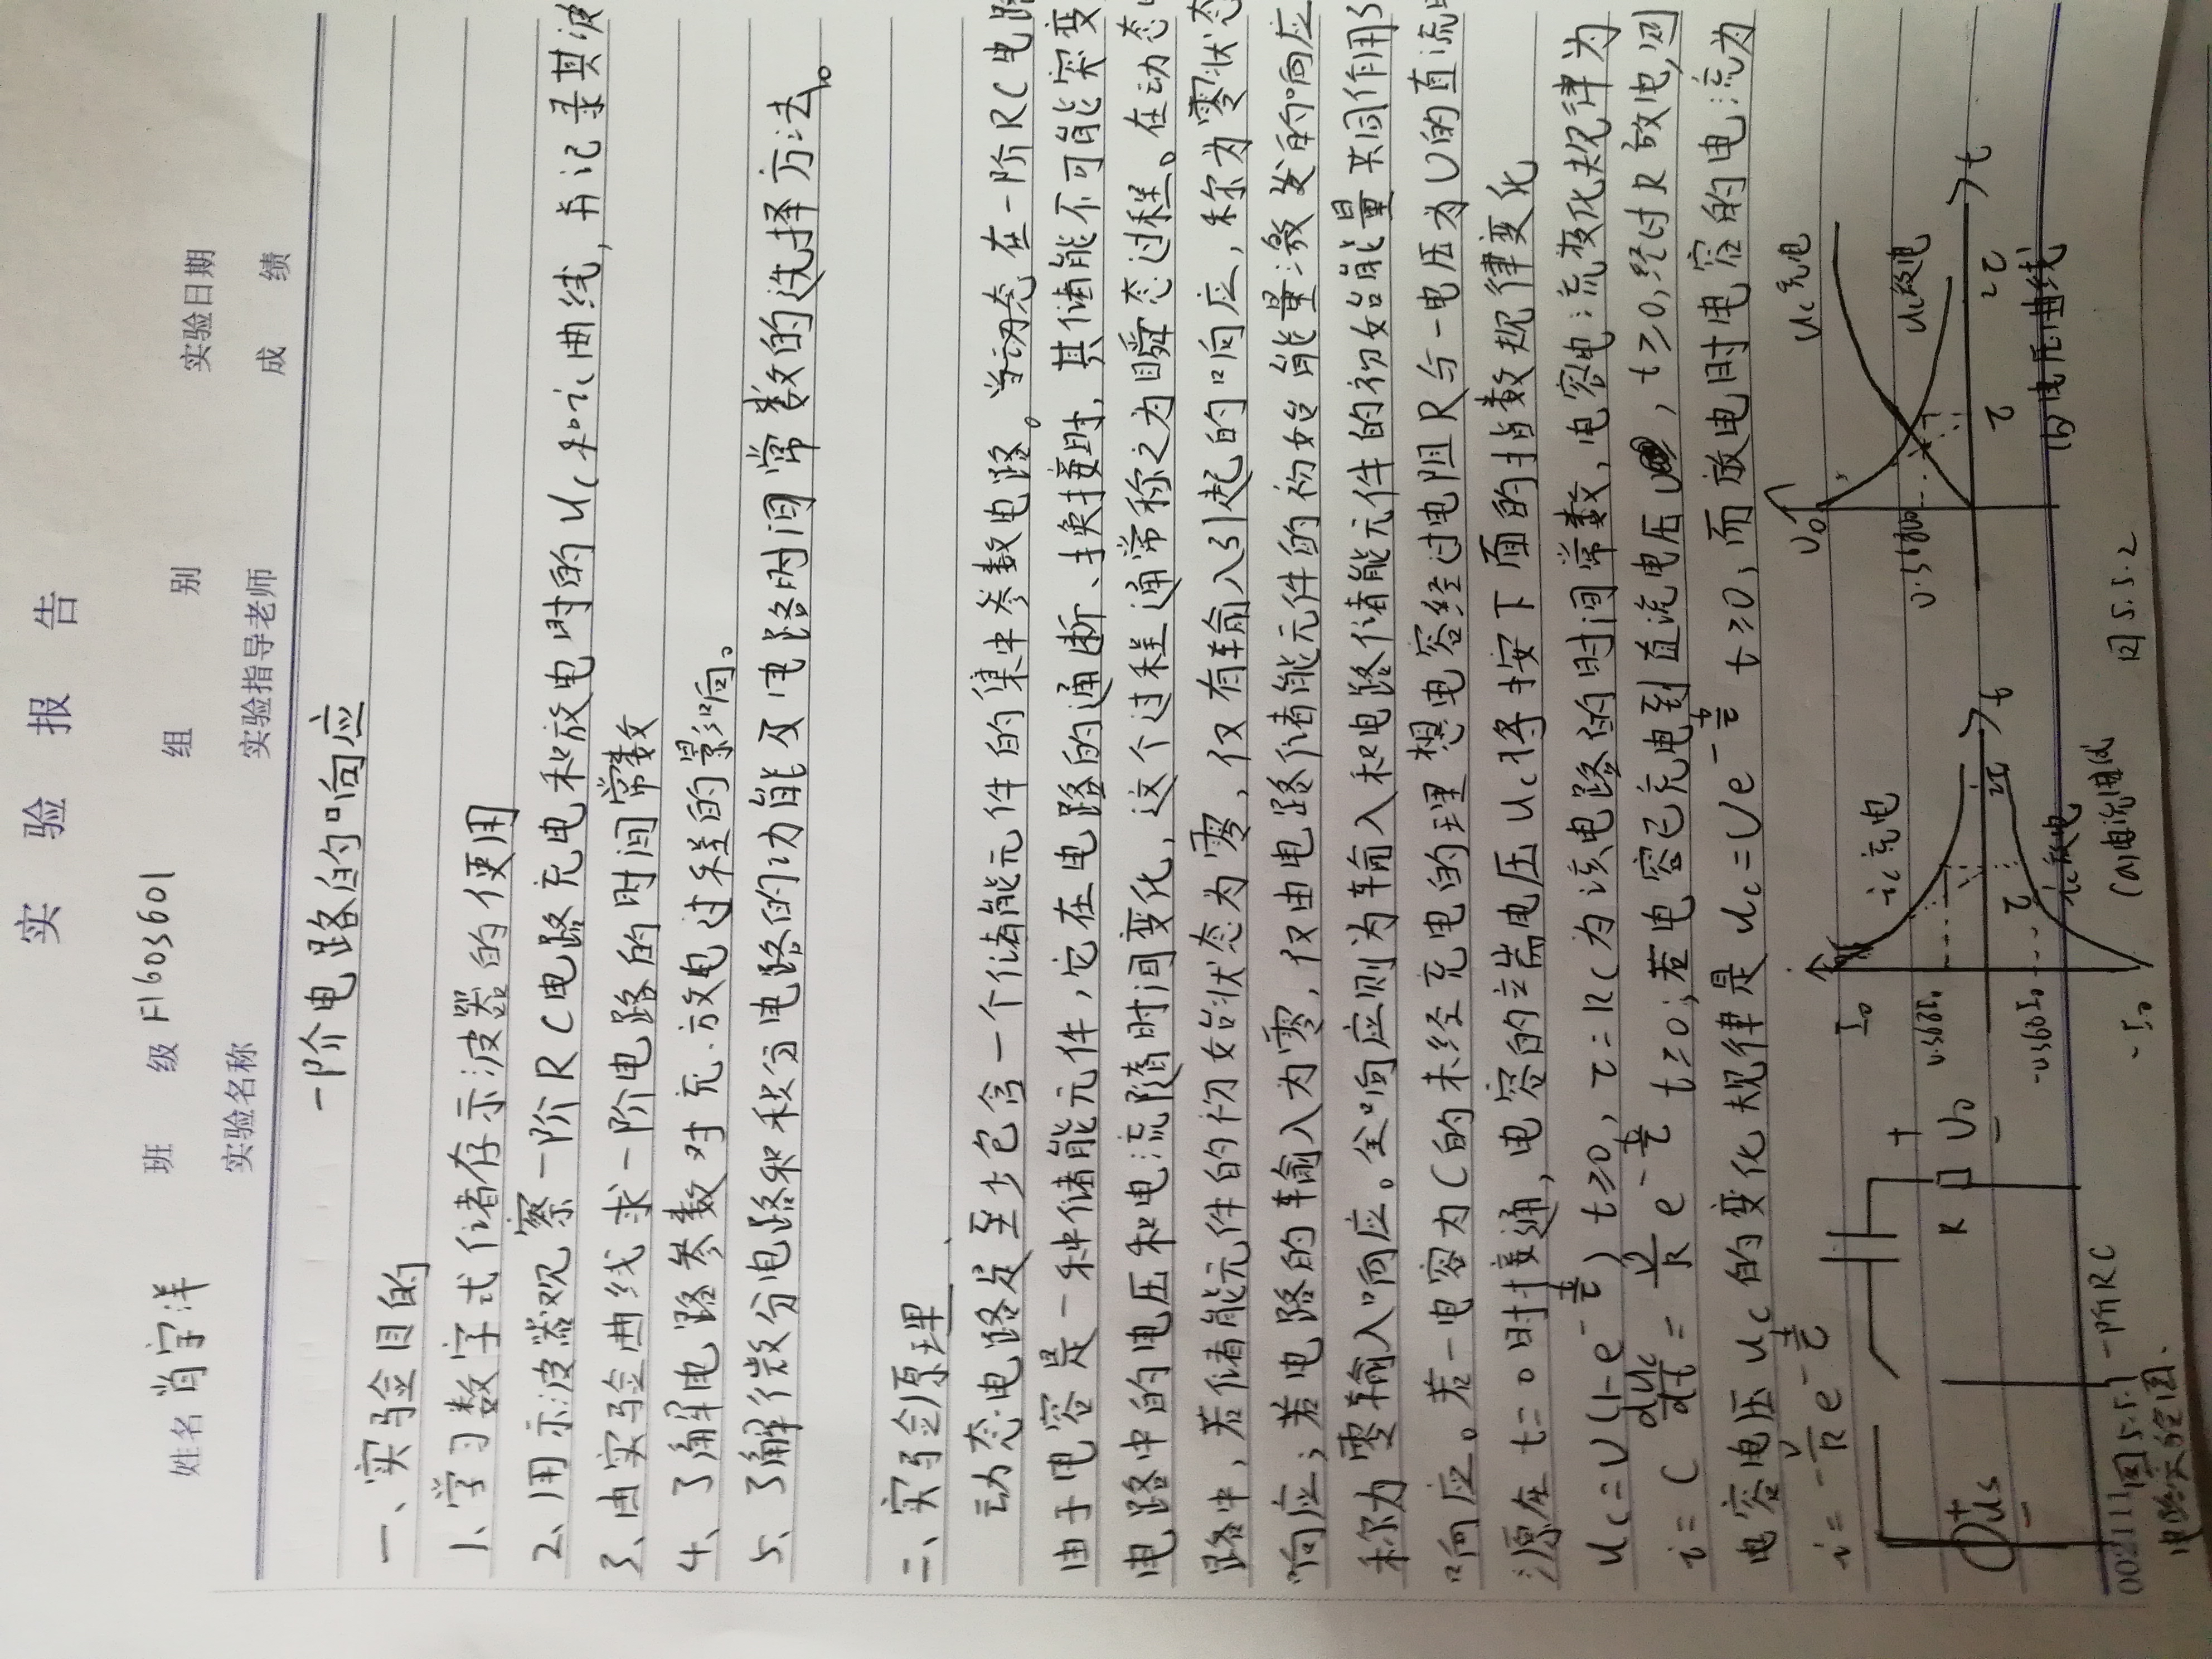 实验报告
姓名 肖宇洋 班级 F1603601 组别 实验日期
实验名称 实验指导老师 成绩
一阶电路的响应
一、实验目的
1、学习数字式储存示波器的使用
2、用示波器观察一阶RC电路充电和放电时的uc和ic曲线,并记录其波
3、由实验曲线求一阶电路的时间常数
4、了解电路参数对充、放电过程的影响。
5、了解微分电路和积分电路的功能及电路时间常数的选择方法。
二、实验原理
动态电路是至少包含一个储能元件的集中参数电路。当动态在一阶RC电路
由于电容是一种储能元件,它在电路的通断、换接时,其储能不可能突变
电路中的电压和电流随时间变化,这个过程通常称之为瞬态过程。在动态
路中,若储能元件的初始状态为零,仅有输入引起的响应,称为零状态
响应;若电路的输入为零,仅由电路储能元件的初始能量激发的响应
称为零输入响应。全响应则为输入和电路储能元件的初始能量共同作用
响应。若一电容为C的未经充电的理想电容经过电阻R与一电压为U的直流
源在t=0时接通,电容的端电压uc将按下面的指数规律变化
uc=U(1-e^{-t/τ}) t≥0, τ=RC为该电路的时间常数,电容电流变化规律为
i=C duc/dt = U/R e^{-t/τ} t≥0;若电容已充电到直流电压U, t≥0,经过R放电,则
电容电压uc的变化规律是uc=Ue^{-t/τ} t≥0,而放电时电容的电流为
i=-U/R e^{-t/τ}
+ us -
R + U0 -
图5.5.1 一阶RC
电路实验图.
002111
I0 ic充电
0.368I0
τ 2τ t
-0.368I0 ic放电
-I0
(a)电流曲线
U0 uc充电
0.368U0 uc放电
τ 2τ t
(b)电压曲线
图5.5.2